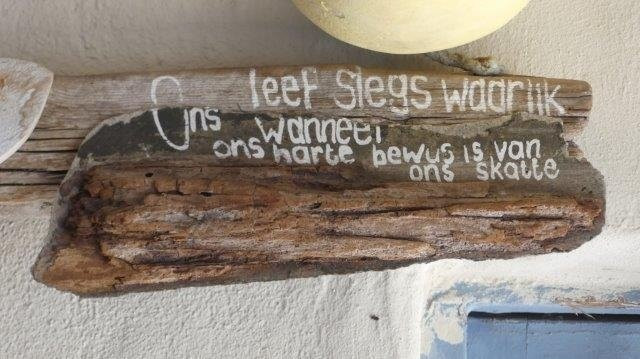 Ons leef slegs waarlik
wanneer
ons harte bewus is van
ons skatte